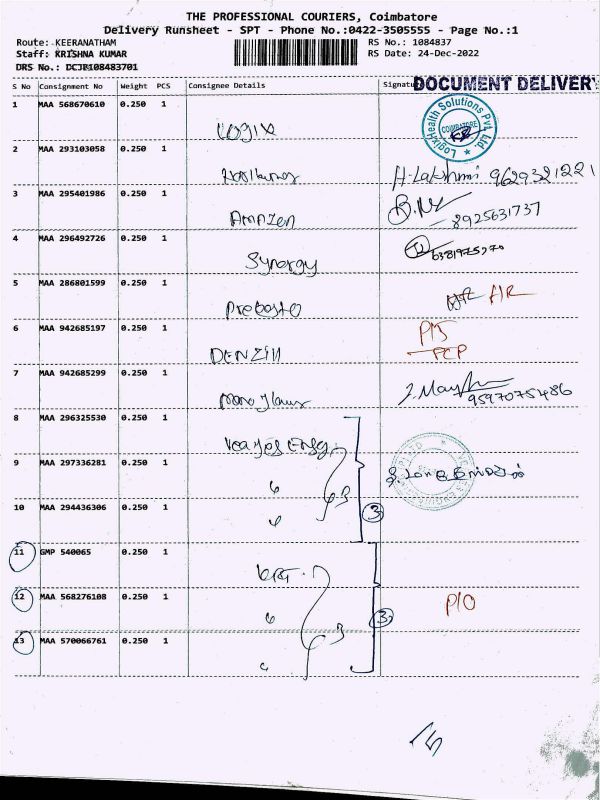 THE PROFESSIONAL COURIERS, Coimbatore
Delivery Runsheet - SPT - Phone No.:0422-3505555 - Page No.:1
Route: KEERANATHAM RS No.: 1084837
Staff: KRISHNA KUMAR RS Date: 24-Dec-2022
DRS No.: DCJP108483701
S No Consignment No Weight PCS Consignee Details Signature DOCUMENT DELIVERY
1 MAA 568670610 0.250 1 LOGIX LogixHealth Solutions Pvt Ltd. COIMBATORE
2 MAA 293103058 0.250 1 H. Lakshmi 9629321221
3 MAA 295401986 0.250 1 Amazen 8925631737
4 MAA 296492726 0.250 1 Synergy
5 MAA 286801599 0.250 1 Prebosto
6 MAA 942685197 0.250 1 DENZIll
7 MAA 942685299 0.250 1 9597075486
8 MAA 296325530 0.250 1
9 MAA 297336281 0.250 1 3
10 MAA 294436306 0.250 1 3
11 GMP 540065 0.250 1
12 MAA 568276108 0.250 1 P/O
13 MAA 570066761 0.250 1 3 3